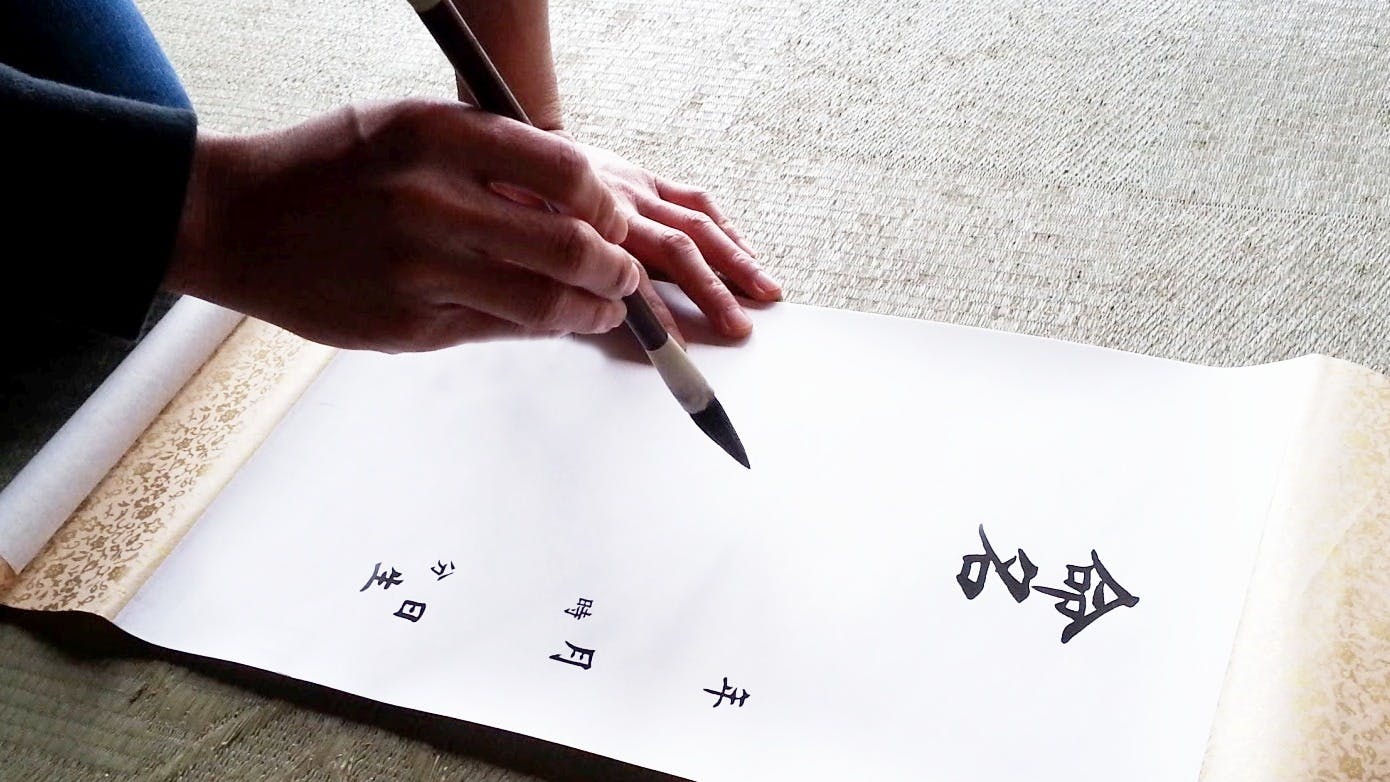 命名
年月日
時分
生